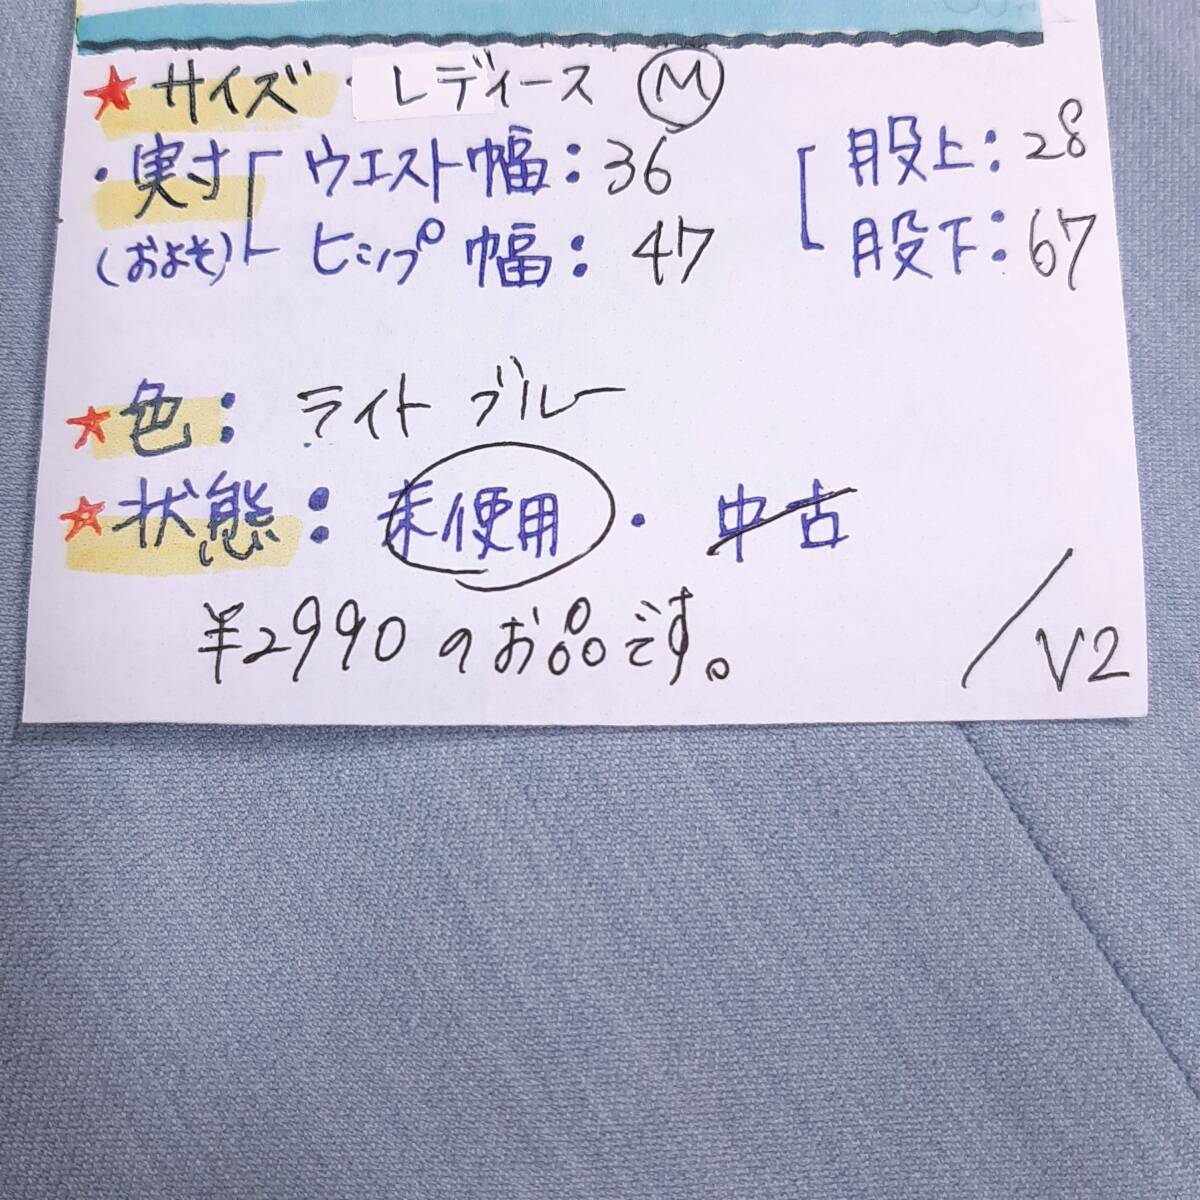 ★サイズ・レディース Ⓜ
・実寸 ウエスト幅：36 股上：28
(およそ) ヒップ幅：47 股下：67
★色：ライトブルー
★状態：未使用・中古
¥2990のお品です。
/V2